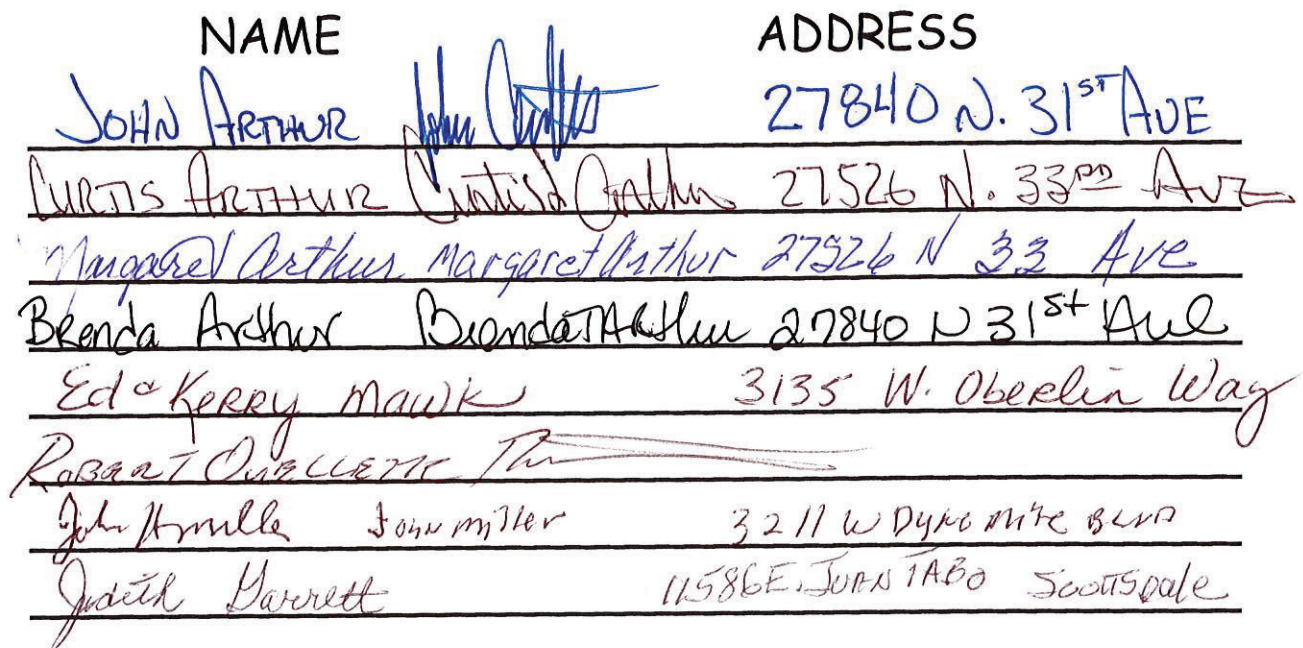 NAME ADDRESS
JOHN ARTHUR John Arthur 27840 N. 31ST AVE
CURTIS ARTHUR Curtis Arthur 27526 N. 33RD AVE
Margaret Arthur Margaret Arthur 27526 N 33 Ave
Brenda Arthur Brenda Arthur 27840 N 31st Ave
Ed & Kerry Mawk 3135 W. Oberlin Way
ROBERT OUELLETTE
John Miller John Miller 3211 W Dynamite BLVD
Judith Garrett 11586 E. JUAN TABO Scottsdale